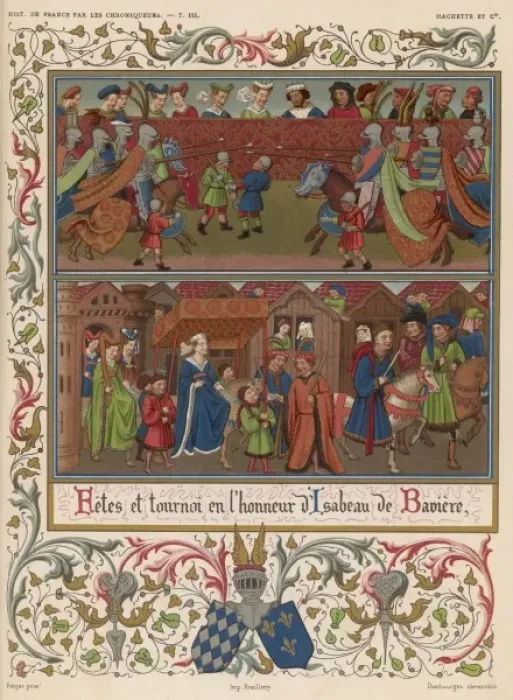 HIST. DE FRANCE PAR LES CHRONIQUEURS. — T. III.
HACHETTE ET Cie.
Fêtes et tournoi en l'honneur d'Isabeau de Bavière,
Imp. Fraillery